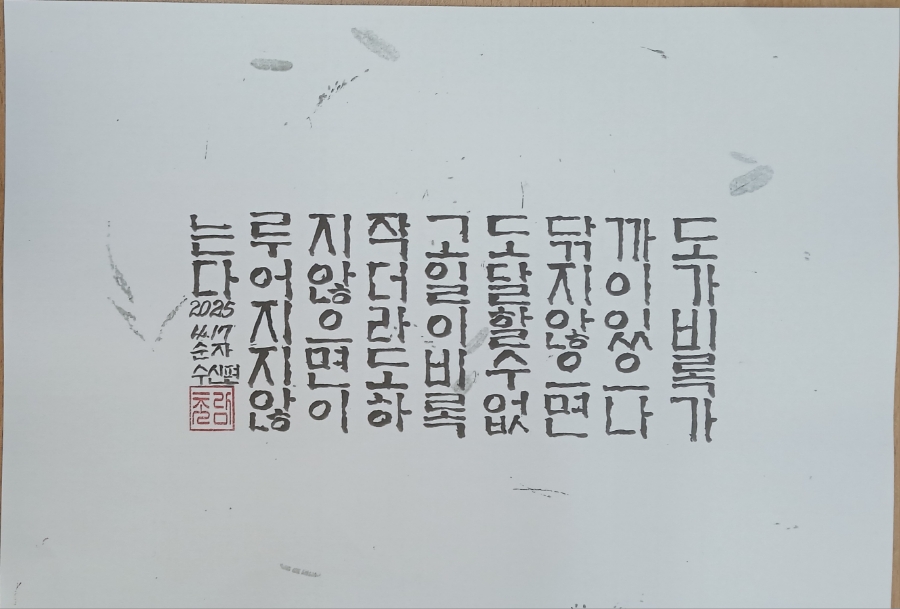 도가비록가
까이있으나
닦지않으면
도달할수없
고일이비록
작더라도하
지않으면이
루어지지않
는다
2025
4.17
순자
수신편